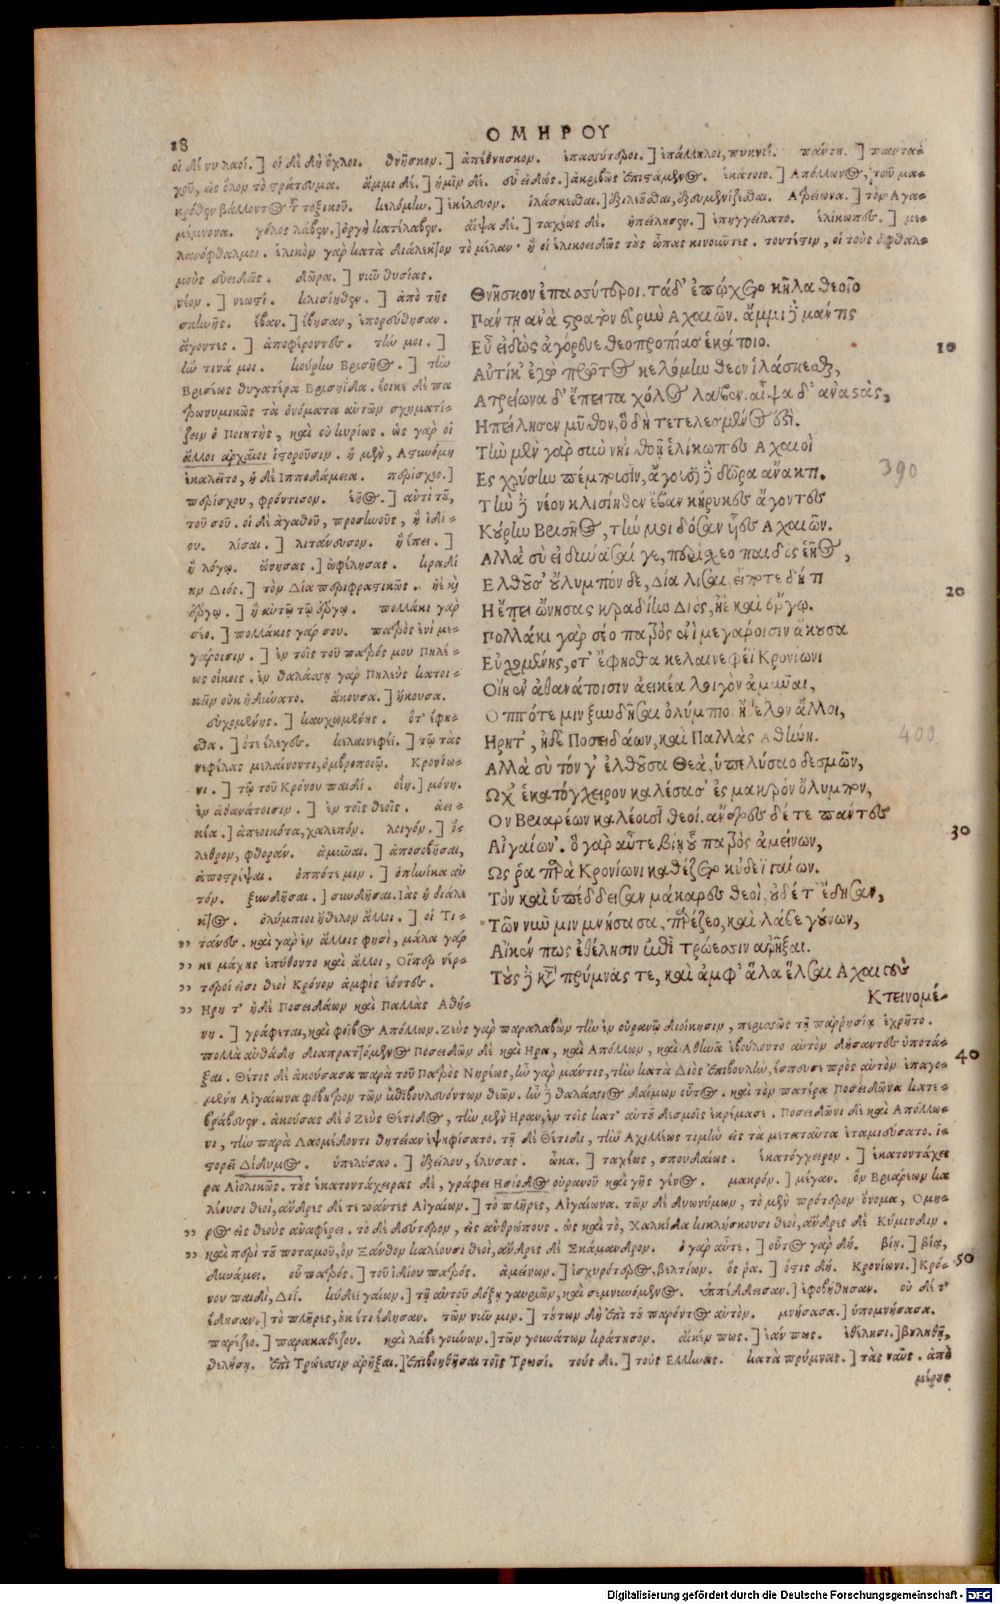 18
ΟΜΗΡΟΥ
οἱ δέ νυ λαοί.] οἱ δὲ δὴ ὄχλοι. θνῆσκον.] ἀπέθνησκον. ἐπασύτεροι.] ἐπάλληλοι, πυκνοί. πάντη.] πανταχοῦ,
εἰς ὅλον τὸ στράτευμα. ἄμμι δέ.] ἡμῖν δέ. εὖ εἰδώς.] ἀκριβῶς ἐπιστάμενος. ἑκάτοιο.] Ἀπόλλωνος, τοῦ μα-
κρόθεν βάλλοντος τοξικοῦ. κελόμην.] ἐκέλευον. ἱλάσκεσθαι.] ἐξιλεοῦσθαι, ἐξευμενίζεσθαι. Ἀτρείωνα.] τὸν Ἀγα-
μέμνονα. χόλος λάβεν.] ὀργὴ κατέλαβεν. αἶψα δέ.] ταχέως δέ. ἠπείλησεν.] ἐπηγγείλατο. ἑλίκωπες.] με-
λανόφθαλμοι. ἑλικὸν γὰρ κατὰ διάλεκτον τὸ μέλαν. ἢ οἱ ἑλικοειδῶς τὰς ὦπας κινοῦντες. τουτέστιν, οἱ τοὺς ὀφθαλ-
μοὺς εὐειδεῖς. δῶρα.] νῦν θυσίας.
νέον.] νεωστί. κλισίηθεν.] ἀπὸ τῆς
σκηνῆς. ἔβαν.] ἔβησαν, ἐπορεύθησαν.
ἄγοντες.] ἀποφέροντες. τήν μοι.]
ἥν τινά μοι. κούρην Βρισῆος.] τὴν
Βρισέως θυγατέρα Βρισηΐδα. ἔοικε δὲ πα
τρωνυμικῶς τὰ ὀνόματα αὐτῶν σχηματί-
ζειν ὁ Ποιητὴς, καὶ οὐ κυρίως. ὡς γὰρ οἱ
ἄλλοι ἀρχαῖοι ἱστοροῦσιν. ἡ μὲν, Ἀστυνόμη
ἐκαλεῖτο, ἡ δὲ Ἱπποδάμεια. περίσχεο.]
περίσχου, φρόντισον. ἑῆος.] ἀντὶ τοῦ,
τοῦ σοῦ. οἱ δὲ ἀγαθοῦ, προσηνοῦς, ἢ ἰδί-
ου. λίσαι.] λιτάνευσον. ἢ ἔπει.]
ἢ λόγῳ. ὤνησας.] ὠφέλησας. κραδί
ην Διός.] τὸν Δία περιφραστικῶς. ἠὲ καὶ
ἔργῳ.] ἢ αὐτῷ τῷ ἔργῳ. πολλάκι γὰρ
σέο.] πολλάκις γάρ σου. πατρὸς ἐνὶ με-
γάροισιν.] ἐν τοῖς τοῦ πατρός μου Πηλέ-
ως οἴκοις. ἐν θαλάσσῃ γὰρ Πηλεὺς κατοι-
κεῖν οὐκ ἠδύνατο. ἄκουσα.] ἤκουσα.
εὐχομένης.] καυχωμένης. ὅτ' ἔφη-
σθα.] ὅτε ἔλεγες. κελαινεφέϊ.] τῷ τὰς
νεφέλας μελαίνοντι, ὀμβροποιῷ. Κρονίω-
νι.] τῷ τοῦ Κρόνου παιδί. οἴη.] μόνη.
ἐν ἀθανάτοισιν.] ἐν τοῖς θεοῖς. ἀει-
κέα.] ἀπεοικότα, χαλεπόν. λοιγόν.] ὄ-
λεθρον, φθοράν. ἀμῦναι.] ἀποσοβῆσαι,
ἀποστρέψαι. ὁππότε μιν.] ὁπηνίκα αὐ
τόν. ξυνδῆσαι.] συνδῆσαι. Ἰὰς ἡ διάλε
κτος. ὀλύμπιοι ἤθελον ἄλλοι.] οἱ Τι-
” τάνες. καὶ γὰρ ἐν ἄλλοις φησὶ, μάλα γάρ
” κε μάχης ἐπύθοντο καὶ ἄλλοι, Οἵπερ νέρ-
” τεροί εἰσι θεοὶ Κρόνον ἀμφὶς ἐόντες.
” Ηρη τ' ἠδὲ Ποσειδάων καὶ Παλλὰς Ἀθή-
Θνῆσκον ἐπασύτεροι. τάδ' ἐπῴχετο κῆλα θεοῖο
Πάντη ἀνὰ στρατὸν εὐρὺν Αχαιῶν. ἄμμι δὲ μάντις
Εὖ εἰδὼς ἀγόρευε θεοπροπίας ἑκάτοιο.
10
Αὐτίκ' ἐγὼ πρῶτος κελόμην θεὸν ἱλάσκεσθαι,
Ατρείωνα δ' ἔπειτα χόλος λάβεν. αἶψα δ' ἀναστὰς,
Ηπείλησεν μῦθον, ὃ δὴ τετελεσμένος ἐστί.
Τὴν μὲν γὰρ σὺν νηῒ θοῇ ἑλίκωπες Αχαιοὶ
Ες χρύσην πέμπουσιν, ἄγουσι δὲ δῶρα ἄνακτι.
390
Τὴν δὲ νέον κλισίηθεν ἔβαν κήρυκες ἄγοντες
Κούρην Βρισῆος, τήν μοι δόσαν υἷες Αχαιῶν.
Αλλὰ σὺ εἰ δύνασαί γε, περίσχεο παιδὸς ἑῆος,
Ελθοῦσ' οὔλυμπόνδε, Δία λίσαι, εἴποτε δή τι
20
Η ἔπει ὤνησας κραδίην Διὸς, ἠὲ καὶ ἔργῳ.
Πολλάκι γὰρ σέο πατρὸς ἐνὶ μεγάροισιν ἄκουσα
Εὐχομένης, ὅτ' ἔφησθα κελαινεφέϊ Κρονίωνι
Οἴη ἐν ἀθανάτοισιν ἀεικέα λοιγὸν ἀμῦναι,
Οππότε μιν ξυνδῆσαι ὀλύμπιοι ἤθελον ἄλλοι,
400
Ηρη τ', ἠδὲ Ποσειδάων, καὶ Παλλὰς Αθήνη.
Αλλὰ σὺ τόν γ' ἐλθοῦσα Θεὰ, ὑπελύσαο δεσμῶν,
Ωχ' ἑκατόγχειρον καλέσασ' ἐς μακρὸν ὄλυμπον,
Ον Βριαρέων καλέουσι θεοὶ. ἄνδρες δέ τε πάντες
30
Αἰγαίων'. ὃ γὰρ αὖτε βίῃ οὗ πατρὸς ἀμείνων,
Ως ῥα παρὰ Κρονίωνι καθέζετο κύδεϊ γαίων.
Τὸν καὶ ὑπέδδεισαν μάκαρες θεοὶ, οὐδέ τ' ἔδησαν,
Τῶν νῦν μιν μνήσασα, παρέζεο, καὶ λάβε γούνων,
Αἴκέν πως ἐθέλησιν ἐπὶ Τρώεσσιν ἀρῆξαι.
Τοὺς δὲ κατὰ πρύμνας τε, καὶ ἀμφ' ἅλα ἔλσαι Αχαιοὺς
Κτεινομέ-
νη.] γράφεται, καὶ φοῖβος Ἀπόλλων. Ζεὺς γὰρ παραλαβὼν τὴν ἐν οὐρανῷ διοίκησιν, περισσῶς τῇ παρρησίᾳ ἐχρῆτο.
πολλὰ αὐθάδη διαπραττόμενος Ποσειδῶν δὲ καὶ Ηρα, καὶ Ἀπόλλων, καὶ Ἀθηνᾶ ἐβούλοντο αὐτὸν δήσαντες ὑποτά-
40
ξαι. Θέτις δὲ ἀκούσασα παρὰ τοῦ Πατρὸς Νηρέως, ἦν γὰρ μάντις, τὴν κατὰ Διὸς ἐπιβουλὴν, ἔσπευσε πρὸς αὐτὸν ἐπαγο-
μένη Αἰγαίωνα φόβητρον τῶν ἐπιβουλευόντων θεῶν. ἦν δὲ θαλάσσιος δαίμων οὗτος. καὶ τὸν πατέρα Ποσειδῶνα κατε-
βράβευεν. ἀκούσας δὲ ὁ Ζεὺς Θέτιδος, τὴν μὲν Ηραν, ἐν τοῖς κατ' αὐτοῦ δεσμοῖς ἐκρέμασε. Ποσειδῶνι δὲ καὶ Ἀπόλλω-
νι, τὴν παρὰ Λαομέδοντι θητείαν ἐψηφίσατο. τῇ δὲ Θέτιδι, τὴν Ἀχιλλέως τιμὴν εἰς τὰ μεταταῦτα ἐταμιεύσατο. ἱ-
στορεῖ Δίδυμος. ὑπελύσαο.] ἐξέλου, ἔλυσας. ὦκα.] ταχέως, σπουδαίως. ἑκατόγχειρον.] ἑκατοντάχει
ρα Αἰολικῶς. τοὺς ἑκατοντάχειρας δὲ, γράφει Ησίοδος οὐρανοῦ καὶ γῆς γένος. μακρόν.] μέγαν. ὃν Βριάρεων κα
λέουσι θεοὶ, ἄνδρες δέ τε πάντες Αἰγαίων.] τὸ πλῆρες, Αἰγαίωνα. τῶν δὲ διωνύμων, τὸ μὲν πρότερον ὄνομα, Ομη-
” ρος εἰς θεοὺς ἀναφέρει. τὸ δὲ δεύτερον, εἰς ἀνθρώπους. ὡς καὶ τὸ, Χαλκίδα κικλήσκουσι θεοὶ, ἄνδρες δὲ Κύμινδιν.
” καὶ περὶ τοῦ ποταμοῦ, ὃν Ξάνθον καλέουσι θεοὶ, ἄνδρες δὲ Σκάμανδρον. ὁ γὰρ αὖτε.] οὗτος γὰρ δή. βίῃ.] βίᾳ,
50
δυνάμει. οὗ πατρός.] τοῦ ἰδίου πατρός. ἀμείνων.] ἰσχυρότερος, βελτίων. ὅς ῥα.] ὅστις δή. Κρονίωνι.] Κρό-
νου παιδὶ, Διΐ. κύδεϊ γαίων.] τῇ αὐτοῦ δόξῃ γαυριῶν, καὶ σεμνυνόμενος. ὑπέδδεισαν.] ἐφοβήθησαν. οὐ δέ τ'
ἔδησαν.] τὸ πλῆρες, οὐκ ἔτι ἔδησαν. τῶν νῦν μιν.] τούτων δὴ ἐπὶ τοῦ παρόντος αὐτόν. μνήσασα.] ὑπομνήσασα.
παρέζεο.] παρακαθέζου. καὶ λάβε γούνων.] τῶν γονάτων κράτησον. αἴκέν πως.] ἐάν πως. ἐθέλησι.] βουληθῇ,
θελήσῃ. ἐπὶ Τρώεσσιν ἀρῆξαι.] ἐπιβοηθῆσαι τοῖς Τρωσί. τοὺς δέ.] τοὺς Ελληνας. κατὰ πρύμνας.] τὰς ναῦς. ἀπὸ
μέρους
Digitalisierung gefördert durch die Deutsche Forschungsgemeinschaft - DFG